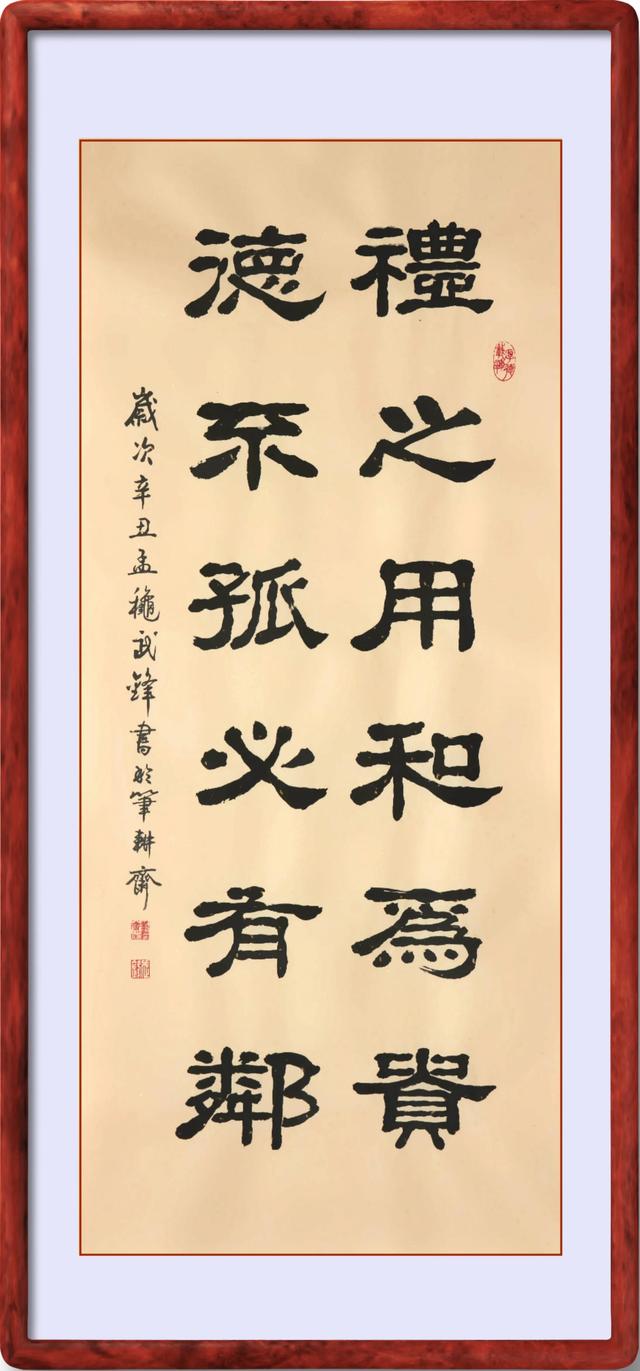 禮之用和為貴
德不孤必有鄰
歲次辛丑孟龝武鋒書於筆耕齋